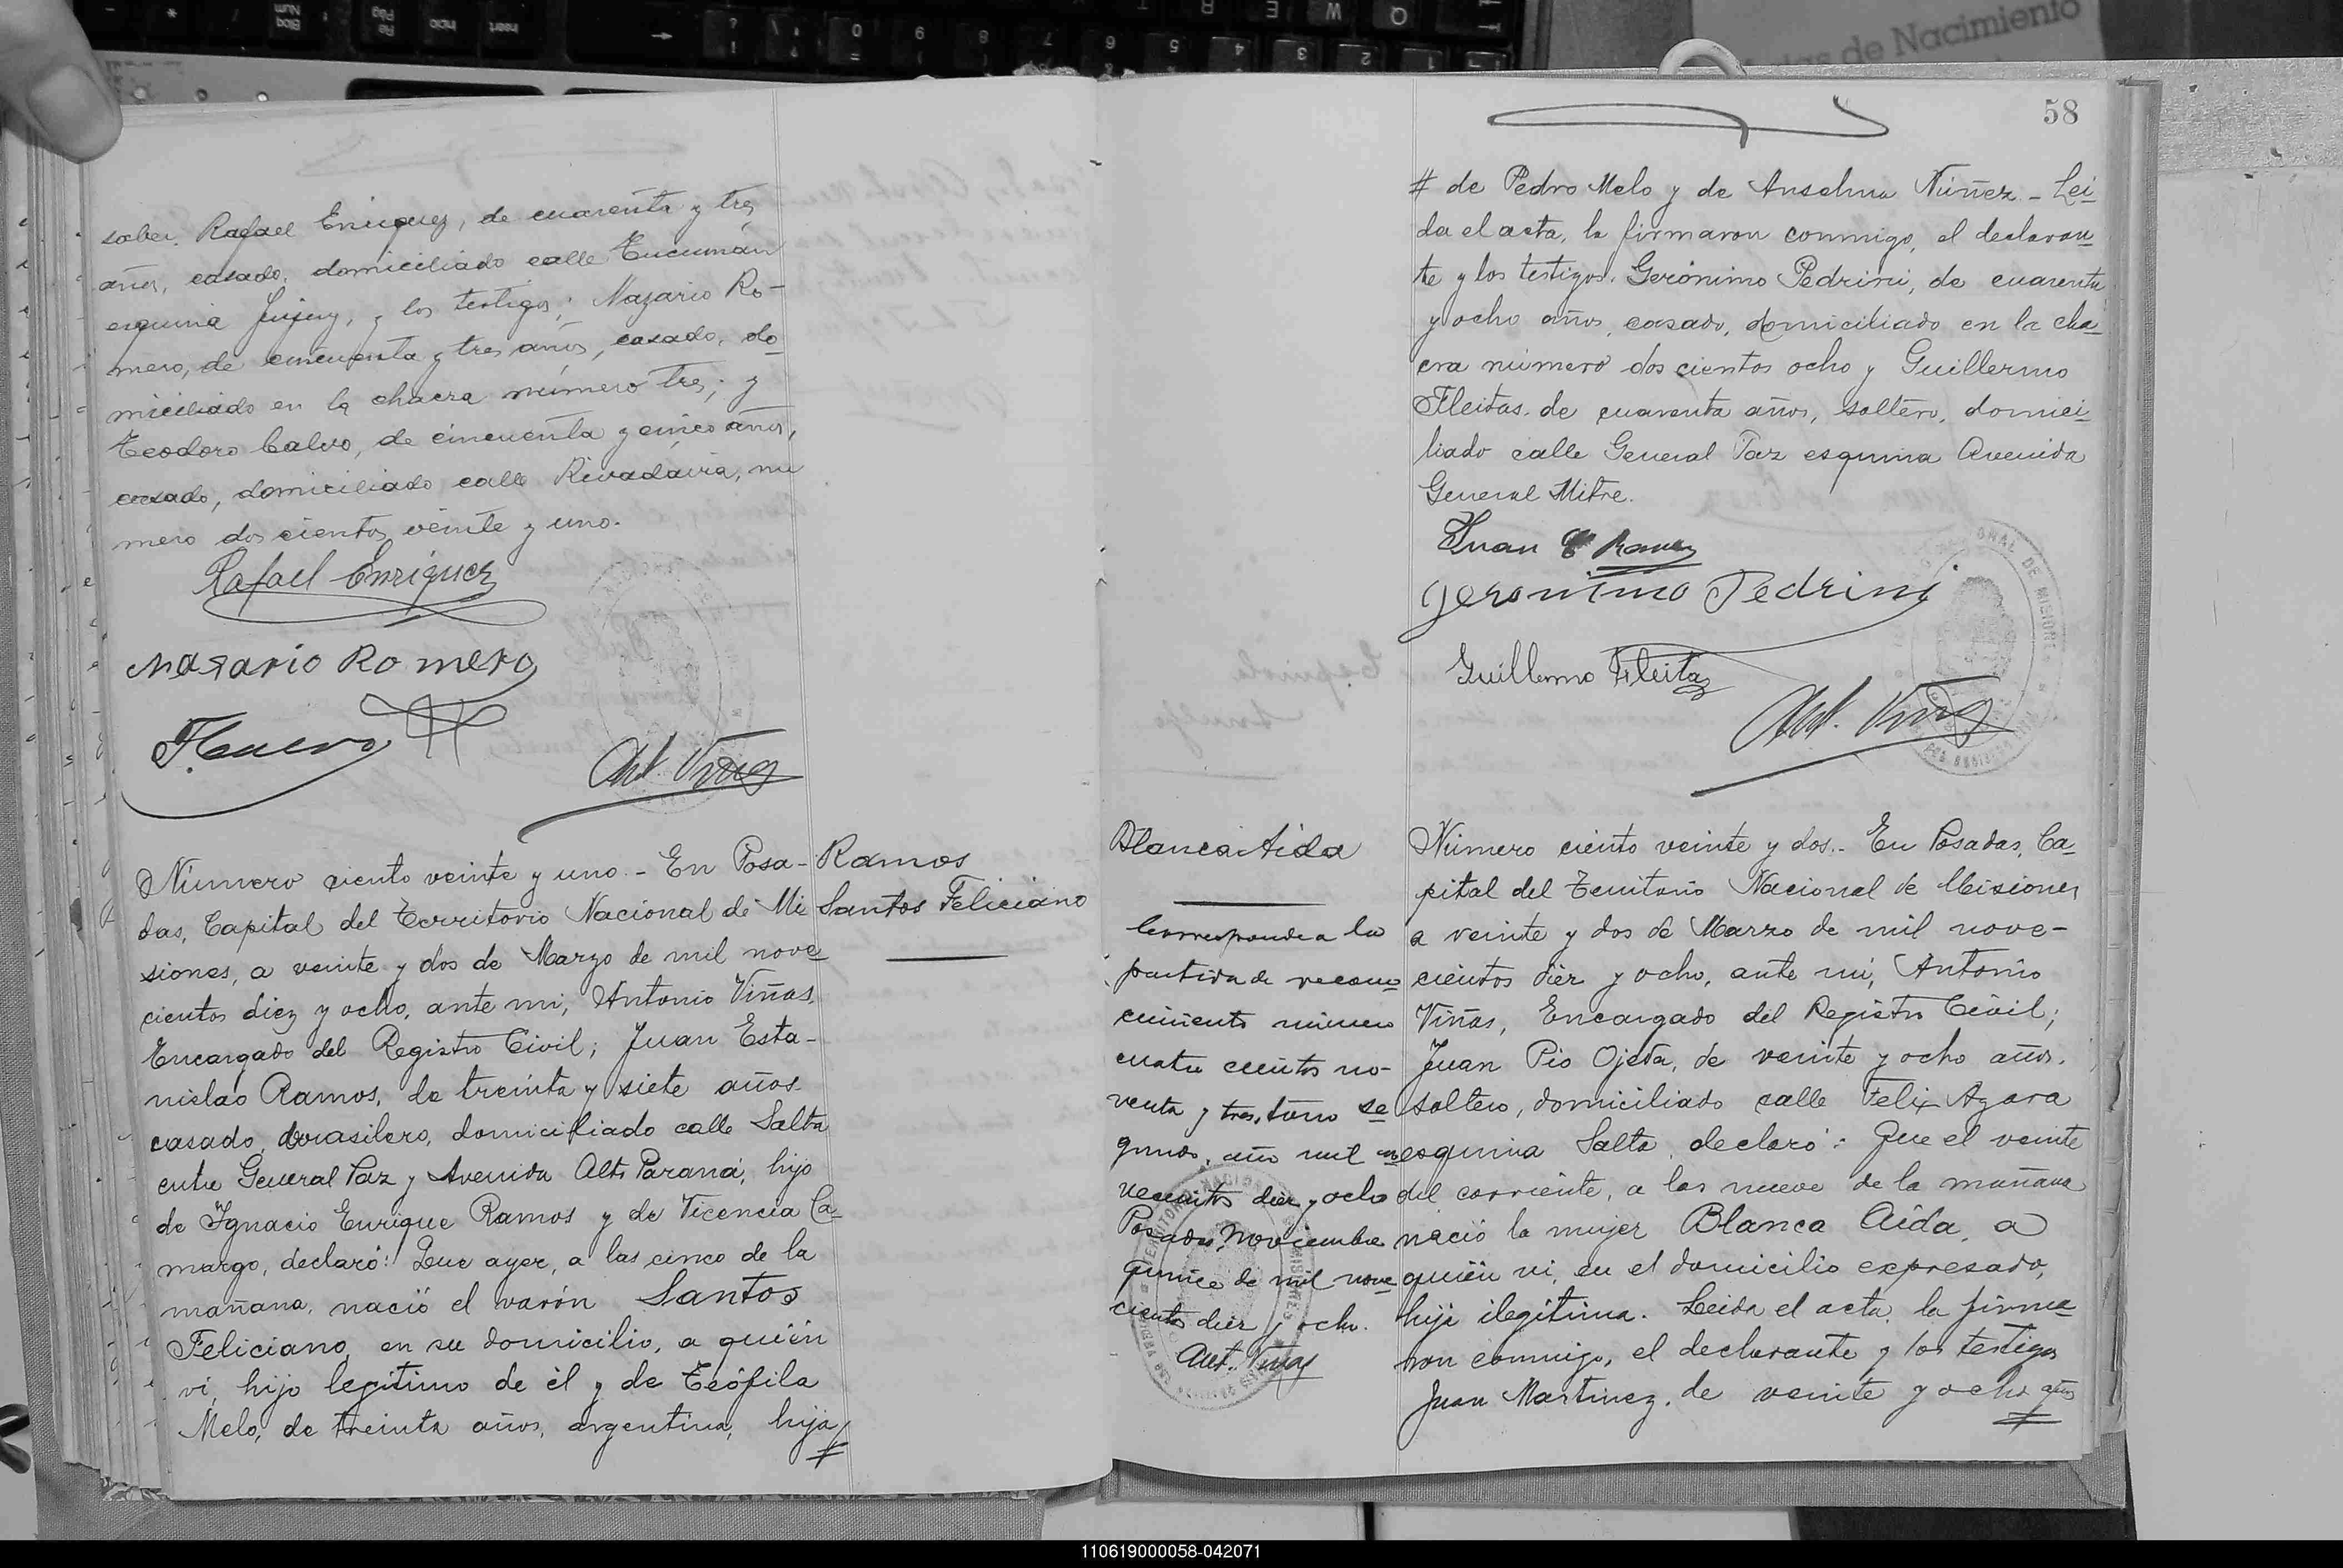 de Nacimiento
saber. Rafael Enriquez, de cuarenta y tres
años, casado, domiciliado calle Tucumán
esquina Jujuy, y los testigos; Nazario Ro-
mero, de cincuenta y tres años, casado, do-
miciliado en la chacra número tres; y
Teodoro Calvo, de cincuenta y cinco años,
casado, domiciliado calle Rivadavia, nu
mero dos cientos veinte y uno.
Rafael Enriquez
Nasario Romero
Ant. Viñas
Número ciento veinte y uno.- En Posa-
das, Capital del Territorio Nacional de Mi
siones, a veinte y dos de Marzo de mil nove
cientos diez y ocho, ante mi, Antonio Viñas,
Encargado del Registro Civil; Juan Esta-
nislao Ramos, de treinta y siete años
casado, brasilero, domiciliado calle Salta
entre General Paz y Avenida Alto Paraná, hijo
de Ignacio Enrique Ramos y de Vicencia Ca-
margo, declaró: Que ayer, a las cinco de la
mañana, nació el varón Santos
Feliciano, en su domicilio, a quién
vi, hijo legítimo de él y de Teófila
Melo, de treinta años, argentina, hija
#
Ramos
Santos Feliciano
58
# de Pedro Melo y de Anselma Núñez - Lei-
da el acta, la firmaron conmigo, el declaran
te y los testigos. Gerónimo Pedrini, de cuarenta
y ocho años, casado, domiciliado en la cha
cra número dos cientos ocho y Guillermo
Fleitas, de cuarenta años, soltero, domici-
liado calle General Paz esquina Avenida
General Mitre.
Juan E Ramos
Jeronimo Pedrini
Guillermo Fleitas
Ant. Viñas
Blanca Aida
Corresponde a la
partida de recono
cimiento número
cuatro cientos no-
venta y tres, tomo se
gundo, año mil no
vecientos diez y ocho
Posadas, Noviembre
quince de mil nove
cientos diez y ocho.
Ant. Viñas
Número ciento veinte y dos.- En Posadas, Ca-
pital del Territorio Nacional de Misiones
a veinte y dos de Marzo de mil nove-
cientos diez y ocho, ante mi, Antonio
Viñas, Encargado del Registro Civil;
Juan Pio Ojeda, de veinte y ocho años,
soltero, domiciliado calle Felix Azara
esquina Salta, declaró: Que el veinte
del corriente, a las nueve de la mañana
nació la mujer Blanca Aida, a
quién vi, en el domicilio expresado,
hija ilegítima. Leida el acta, la firma
ron conmigo, el declarante y los testigos
Juan Martinez, de veinte y ocho años
#
110619000058-042071